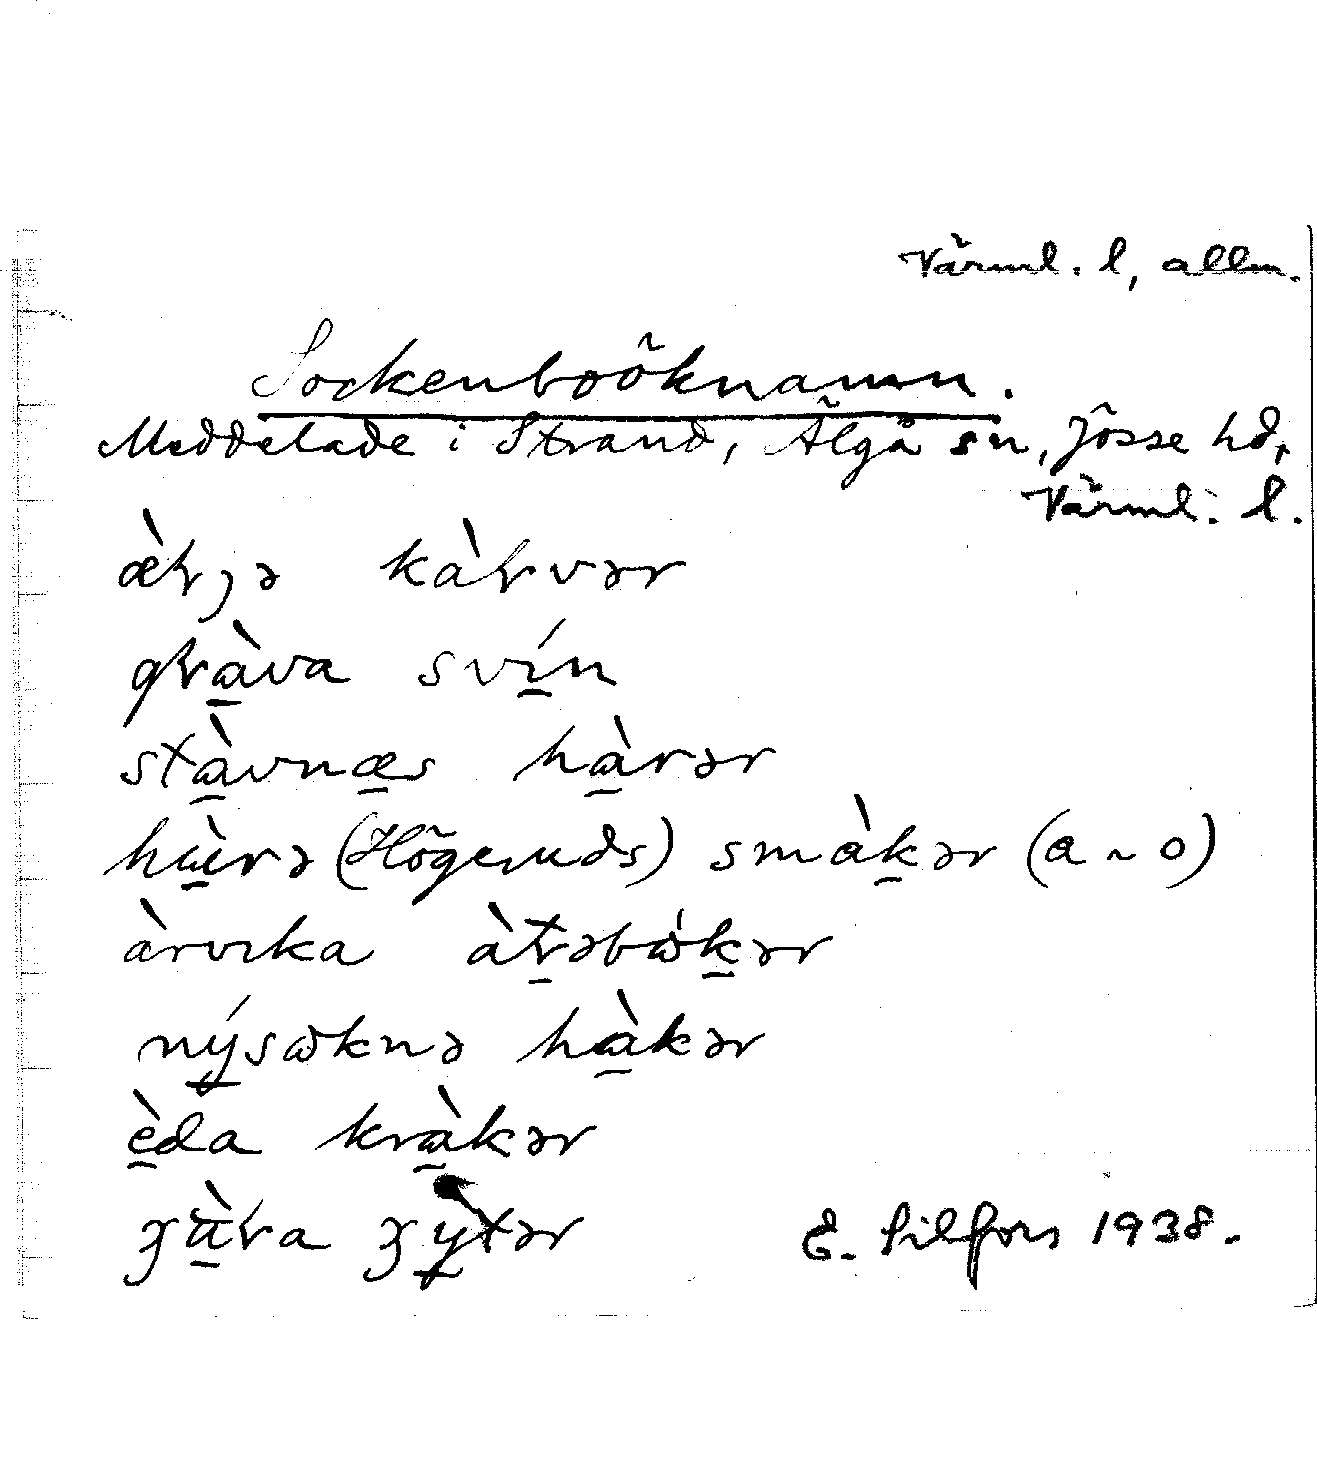 Värml. l, allm.
Sockenboöknamn.
Meddelade i Strand, Älgå sn, Jösse hd,
Värml. l.
æ̀ɽɟə kàɽvər
gɽà̱va sví̱n
stà̱vnæ̱s hà̱rər
hɯ̱̀rə (Högeruds) smàḵər (a ~ o)
àrvıka àṯɽəbɷ̀ḵər
ný̱sɷknə hà̱kər
è̱da krà̱kər
ʒà̱ɽa ʒỳ̱tər
E. Lilfors 1938.